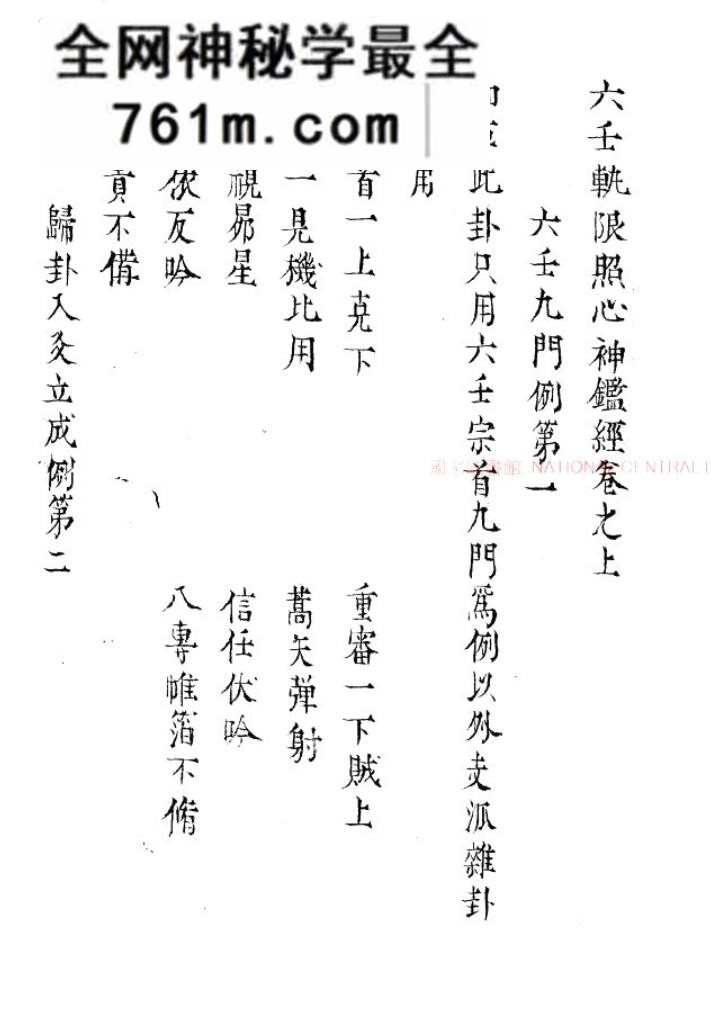 全网神秘学最全
761m.com
六壬軌限照心神鑑經卷之上
六壬九門例第一
此卦只用六壬宗首九門爲例以外支派雜卦
用
首一上克下
重審一下賊上
一見機比用
蒿矢弹射
視昴星
信任伏吟
依反吟
八專帷箔不脩
責不備
歸卦入灸立成例第二
NATIONAL CENTRAL L